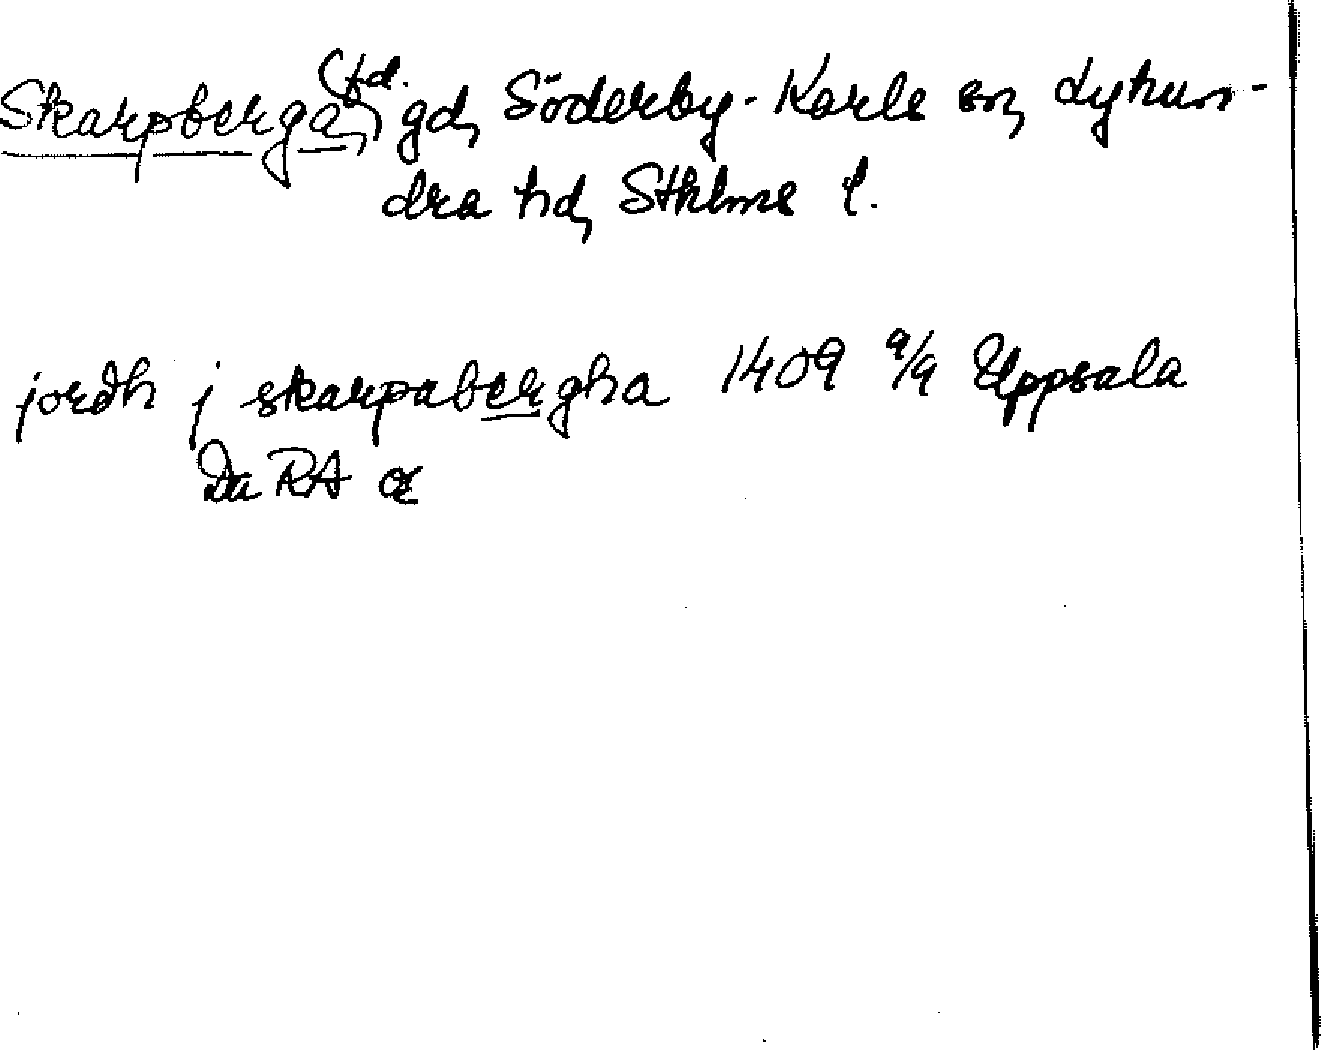 Skarpberga, (fd.) gd, Söderby-Karls sn, Lyhun-
dra hd, Sthlms l.
jordh j skarpabergha 1409 9/9 Uppsala
RA